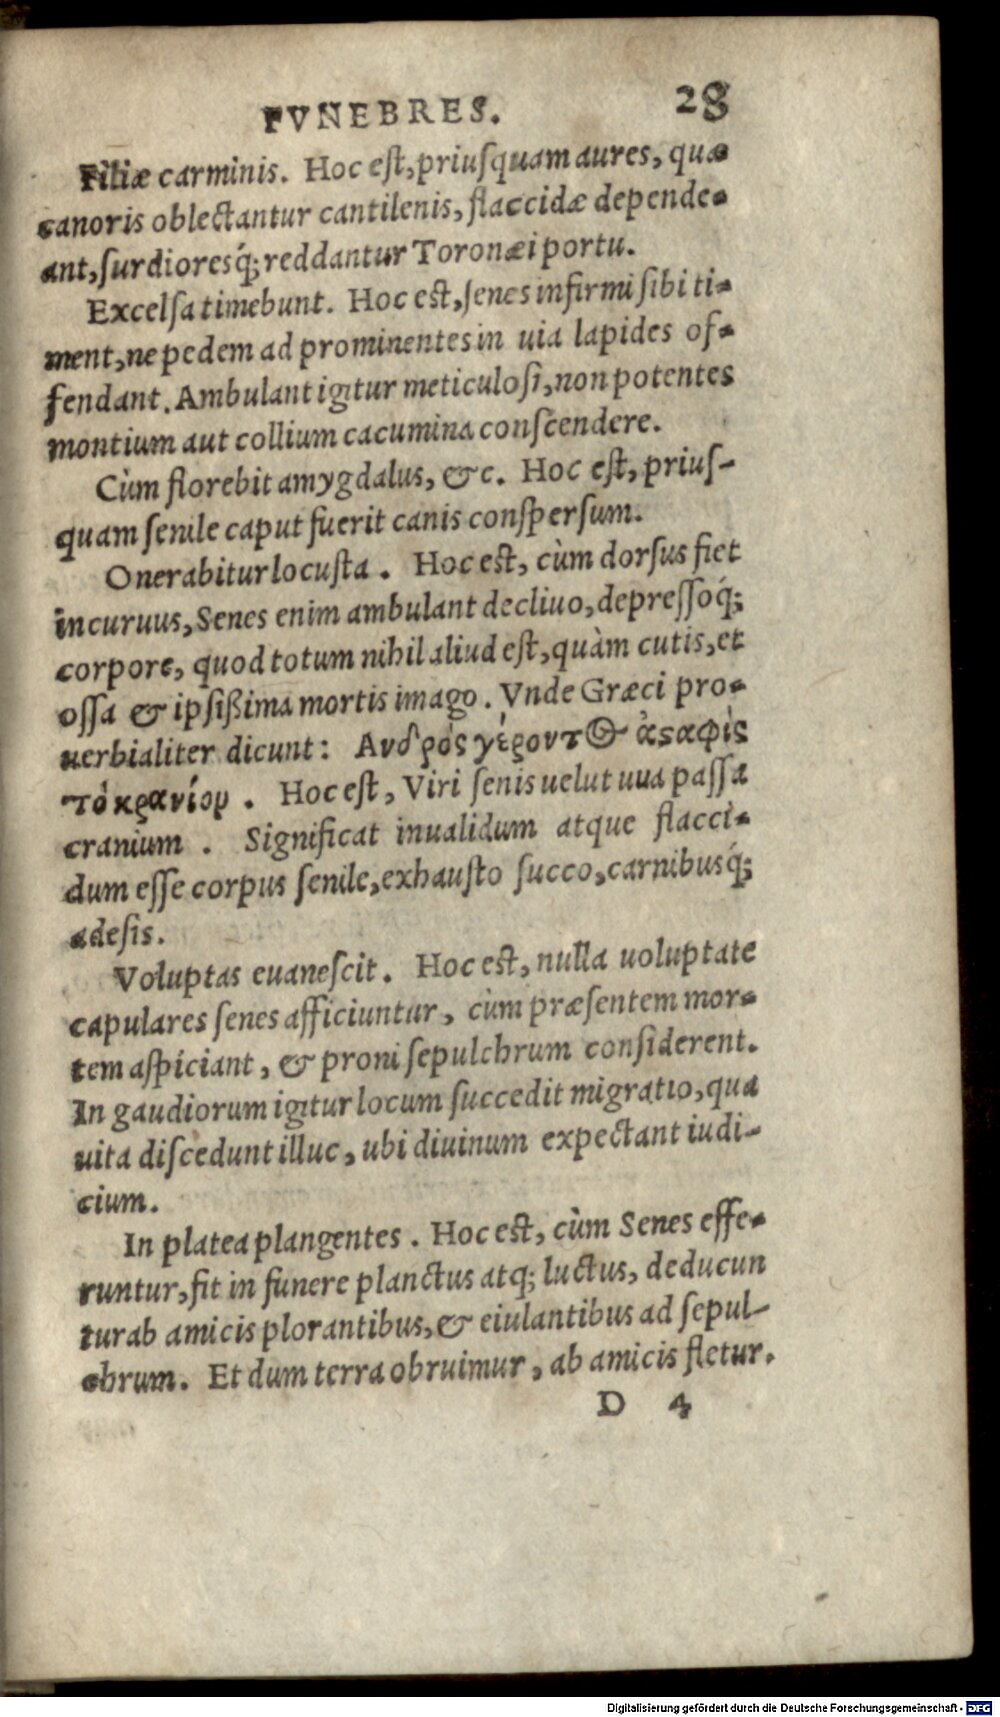 FVNEBRES. 28
Filiæ carminis. Hoc est, priusquam aures, quæ
canoris oblectantur cantilenis, flaccidæ depende-
ant, surdioresq́; reddantur Toronæi portu.
Excelsa timebunt. Hoc est, senes infirmi sibi ti-
ment, ne pedem ad prominentes in uia lapides of-
fendant. Ambulant igitur meticulosi, non potentes
montium aut collium cacumina conscendere.
Cùm florebit amygdalus, &c. Hoc est, prius-
quam senile caput fuerit canis conspersum.
Onerabitur locusta. Hoc est, cùm dorsus fiet
incuruus, Senes enim ambulant decliuo, depressoq́;
corpore, quod totum nihil aliud est, quàm cutis, et
ossa & ipsißima mortis imago. Vnde Græci pro-
uerbialiter dicunt: Ανδρός γέροντος ἀσαφὶς
τὸ κρανίον. Hoc est, Viri senis uelut uua passa
cranium. Significat inualidum atque flacci-
dum esse corpus senile, exhausto succo, carnibusq́;
adesis.
Voluptas euanescit. Hoc est, nulla uoluptate
capulares senes afficiuntur, cùm præsentem mor-
tem aspiciant, & proni sepulchrum considerent.
In gaudiorum igitur locum succedit migratio, qua
uita discedunt illuc, ubi diuinum expectant iudi-
cium.
In platea plangentes. Hoc est, cùm Senes effe-
runtur, fit in funere planctus atq; luctus, deducun
tur ab amicis plorantibus, & eiulantibus ad sepul-
chrum. Et dum terra obruimur, ab amicis fletur.
D 4
Digitalisierung gefördert durch die Deutsche Forschungsgemeinschaft - DFG